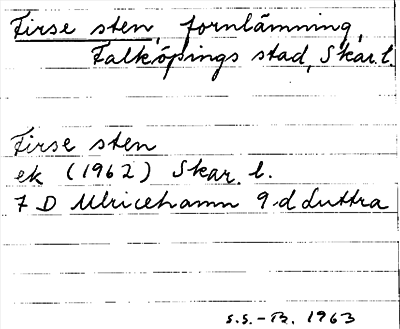 Firse sten, fornlämning,
Falköpings stad, Skar. l.
Firse sten
ek (1962) Skar. l.
7 D Ulricehamn 9 d Luttra
S.S.-B. 1963